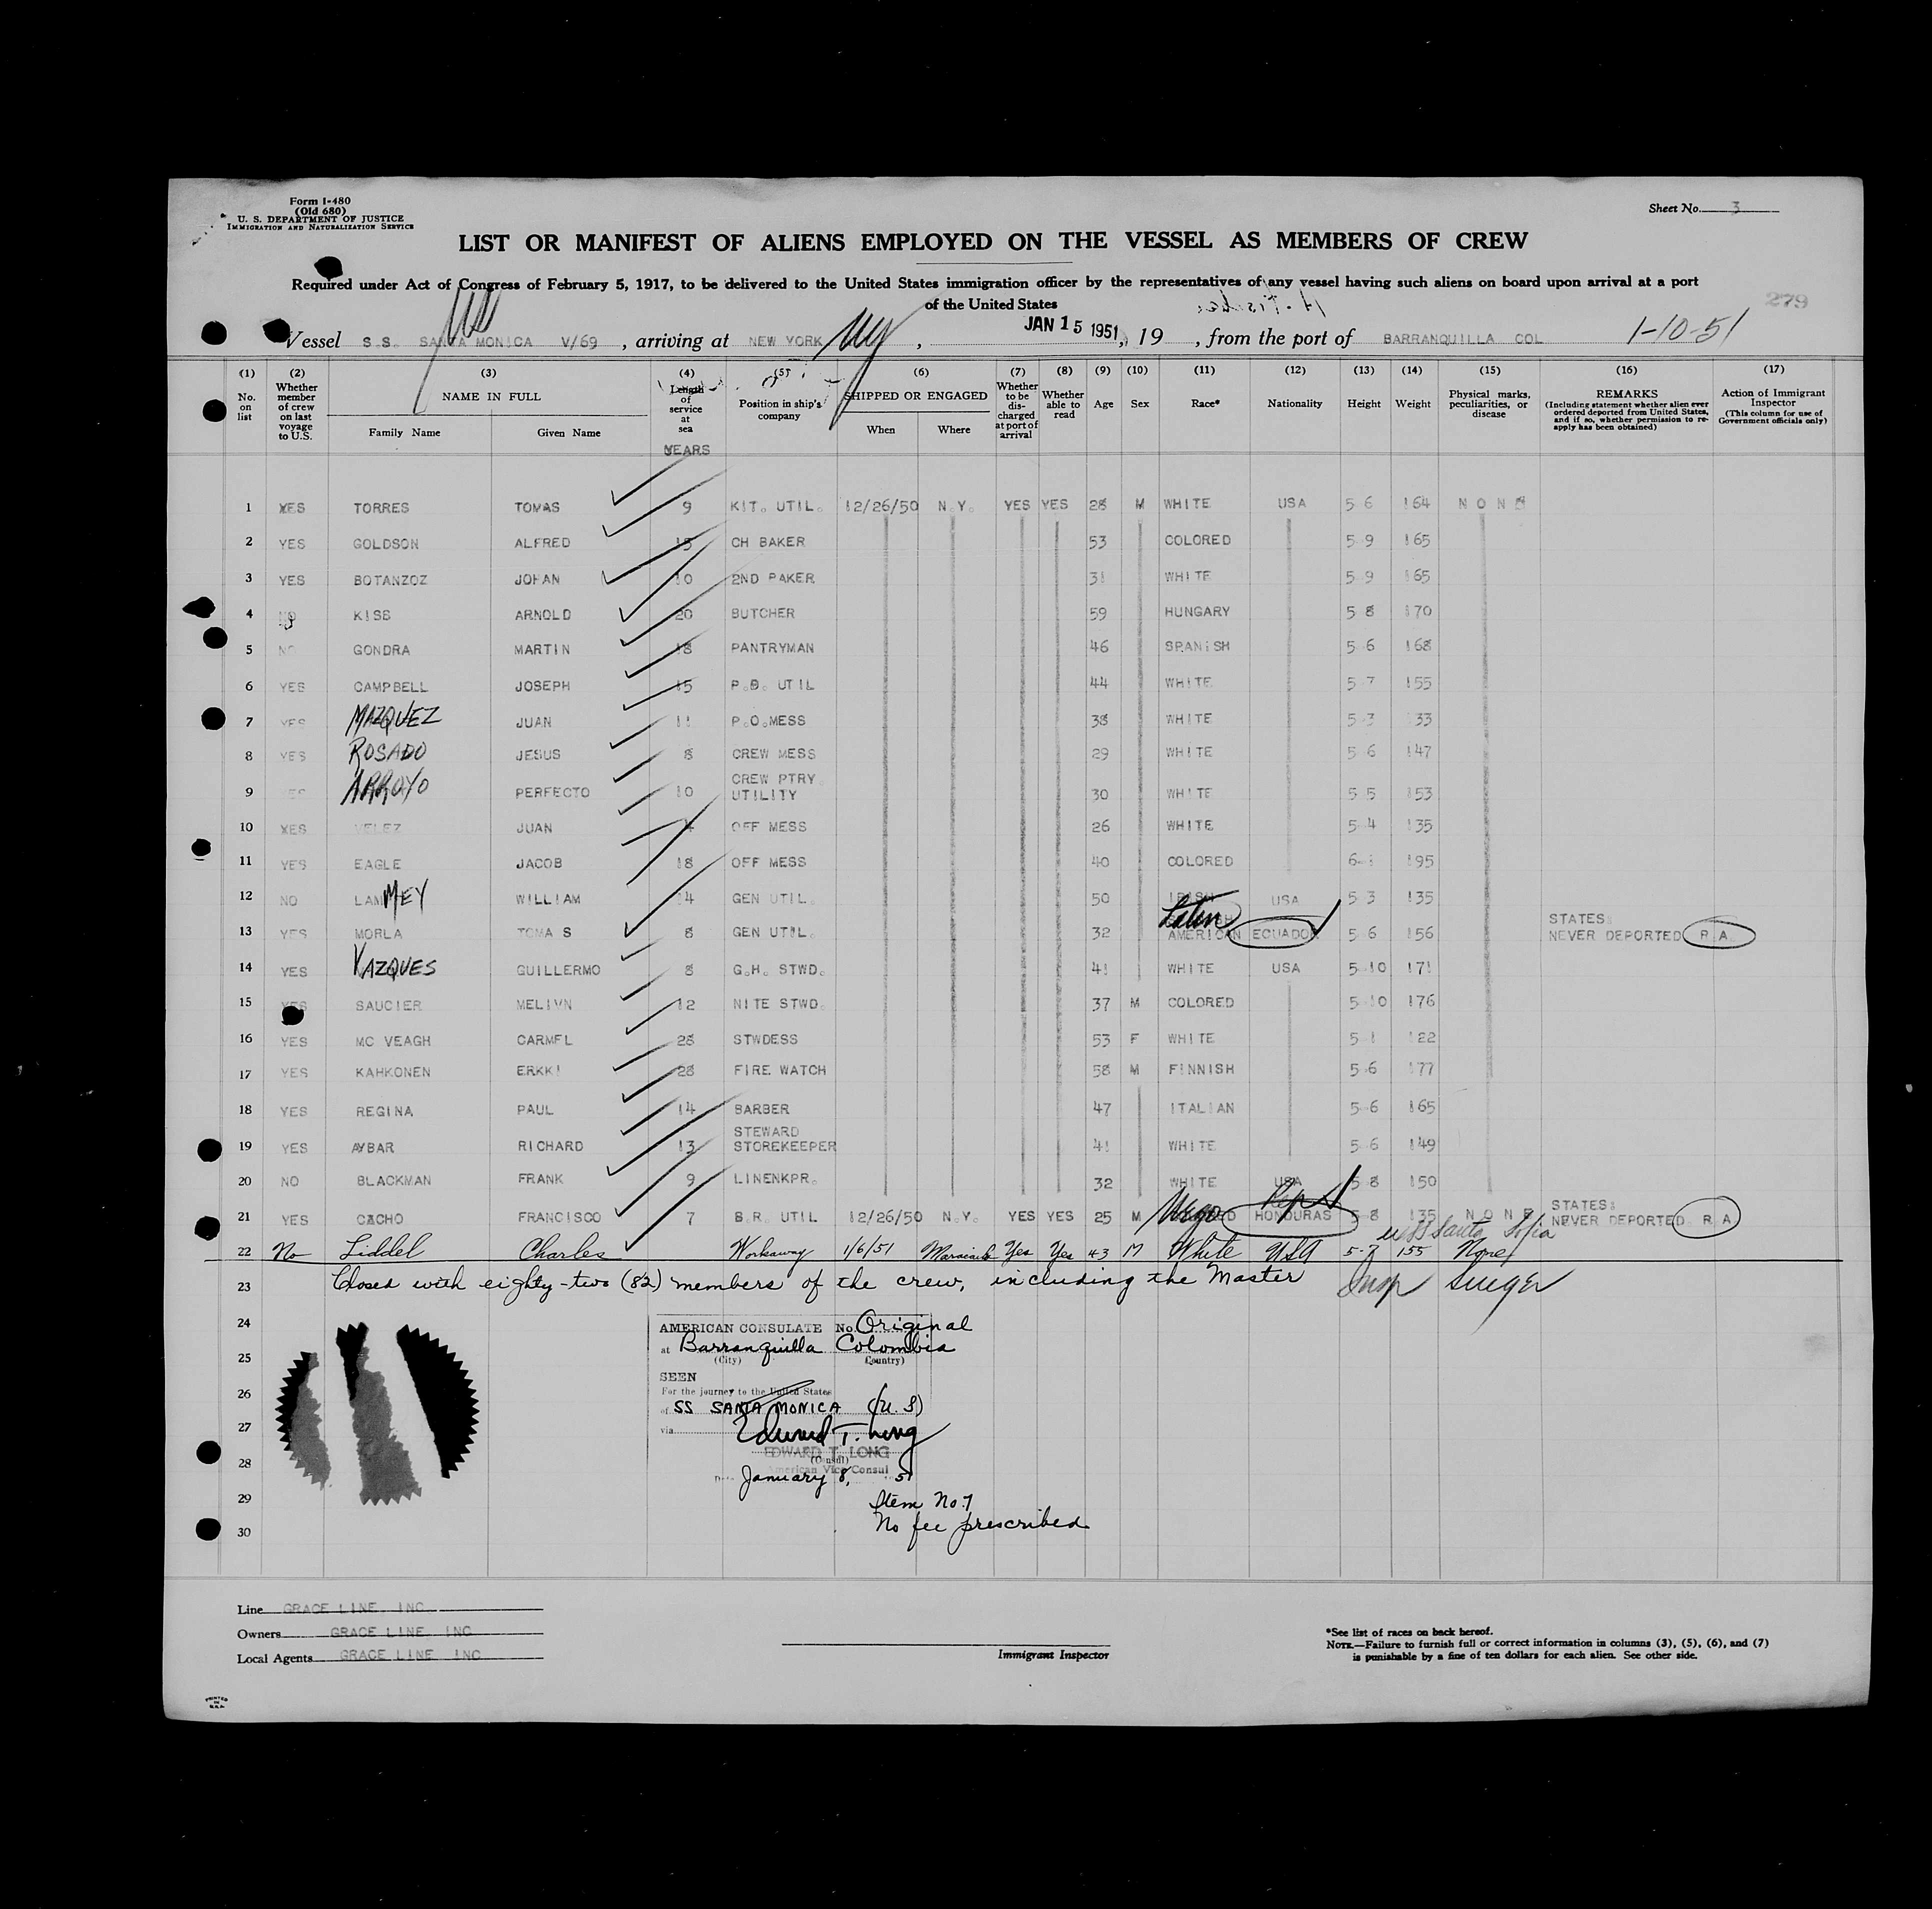 Form I-480
(Old 680)
U. S. DEPARTMENT OF JUSTICE
IMMIGRATION AND NATURALIZATION SERVICE
Sheet No. 3
LIST OR MANIFEST OF ALIENS EMPLOYED ON THE VESSEL AS MEMBERS OF CREW
Required under Act of Congress of February 5, 1917, to be delivered to the United States immigration officer by the representatives of any vessel having such aliens on board upon arrival at a port
of the United States
279
Vessel S.S. SANTA MONICA V/69 , arriving at NEW YORK , JAN 15 1951, 19 , from the port of BARRANQUILLA COL 1-10-51
(1) (2) (3) (4) (5) (6) (7) (8) (9) (10) (11) (12) (13) (14) (15) (16) (17)
No. on list
Whether member of crew on last voyage to U.S.
NAME IN FULL
Family Name Given Name
Length of service at sea
YEARS
Position in ship's company
SHIPPED OR ENGAGED
When Where
Whether to be discharged at port of arrival
Whether able to read
Age
Sex
Race*
Nationality
Height
Weight
Physical marks, peculiarities, or disease
REMARKS
(Including statement whether alien ever ordered deported from United States, and if so, whether permission to re-apply has been obtained)
Action of Immigrant Inspector
(This column for use of Government officials only)
1 YES TORRES TOMAS 9 KIT. UTIL. 12/26/50 N.Y. YES YES 28 M WHITE USA 5 6 164 NONE
2 YES GOLDSON ALFRED 15 CH BAKER 53 COLORED 5 9 165
3 YES BOTANZOZ JOHAN 10 2ND BAKER 31 WHITE 5 9 165
4 NO KISS ARNOLD 20 BUTCHER 59 HUNGARY 5 8 170
5 NO GONDRA MARTIN 18 PANTRYMAN 46 SPANISH 5 6 168
6 YES CAMPBELL JOSEPH 15 P.O. UTIL 44 WHITE 5 7 155
7 YES MAZQUEZ JUAN 11 P.O.MESS 38 WHITE 5 3 133
8 YES ROSADO JESUS 8 CREW MESS 29 WHITE 5 6 147
9 YES ARROYO PERFECTO 10 CREW PTRY UTILITY 30 WHITE 5 5 153
10 YES VELEZ JUAN 4 OFF MESS 26 WHITE 5 4 135
11 YES EAGLE JACOB 18 OFF MESS 40 COLORED 6-1 195
12 NO LAMMEY WILLIAM 14 GEN UTIL. 50 IRISH USA 5 3 135
13 YES MORLA TOMAS 8 GEN UTIL. 32 Latin AMERICAN ECUADOR 5 6 156 STATES: NEVER DEPORTED R.A.
14 YES VAZQUES GUILLERMO 8 G.H. STWD. 41 WHITE USA 5 10 171
15 YES SAUCIER MELIVN 12 NITE STWD. 37 M COLORED 5 10 176
16 YES MC VEAGH CARMEL 28 STWDESS 53 F WHITE 5 1 122
17 YES KAHKONEN ERKKI 28 FIRE WATCH 58 M FINNISH 5 6 177
18 YES REGINA PAUL 14 BARBER 47 ITALIAN 5 6 165
19 YES AYBAR RICHARD 13 STEWARD STOREKEEPER 41 WHITE 5 6 149
20 NO BLACKMAN FRANK 9 LINENKPR. 32 WHITE USA 5 8 150
21 YES CACHO FRANCISCO 7 B.R. UTIL 12/26/50 N.Y. YES YES 25 M HONDURAS 5-8 135 NONE STATES: NEVER DEPORTED R A
ss Santa Sofia
22 No Liddel Charles Workaway 1/6/51 Maracaibo Yes Yes 43 M White USA 5-7 155 None
23 Closed with eighty-two (82) members of the crew, including the Master Insp
24
25
26
27
28
29
30
AMERICAN CONSULATE No. Original
at Barranquilla Colombia
(City) (Country)
SEEN
For the journey to the United States
of SS SANTA MONICA (U.S)
via
Edward T. Long
EDWARD T. LONG
(Consul)
American Vice Consul
Date January 8, 51
Item No. 7
No fee prescribed
Line GRACE LINE INC
Owners GRACE LINE INC
Local Agents GRACE LINE INC
Immigrant Inspector
*See list of races on back hereof.
NOTE.—Failure to furnish full or correct information in columns (3), (5), (6), and (7)
is punishable by a fine of ten dollars for each alien. See other side.
PRINTED IN U.S.A.